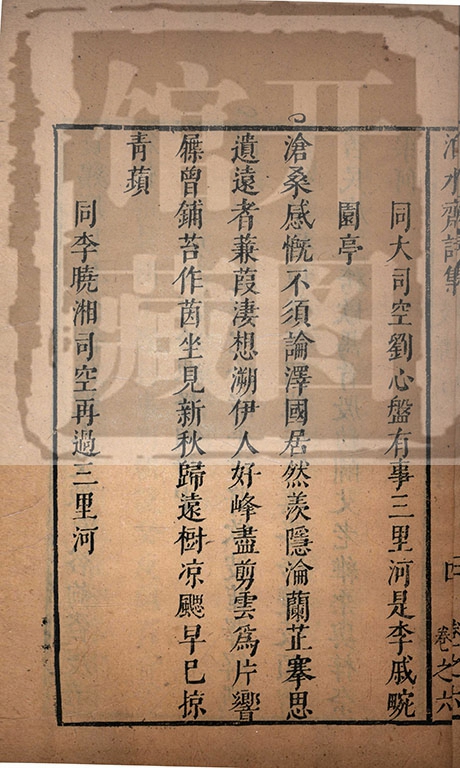 同大司空劉心盤有事三里河是李戚畹
園亭
滄桑感慨不須論澤國居然羨隱淪蘭芷搴思
遺遠者蒹葭淒想溯伊人好峰盡剪雲爲片響
屧曾鋪苔作茵坐見新秋歸遠樹凉颸早已掠
青蘋
同李曉湘司空再過三里河
水齋詩集
卷之六
开图
馆藏